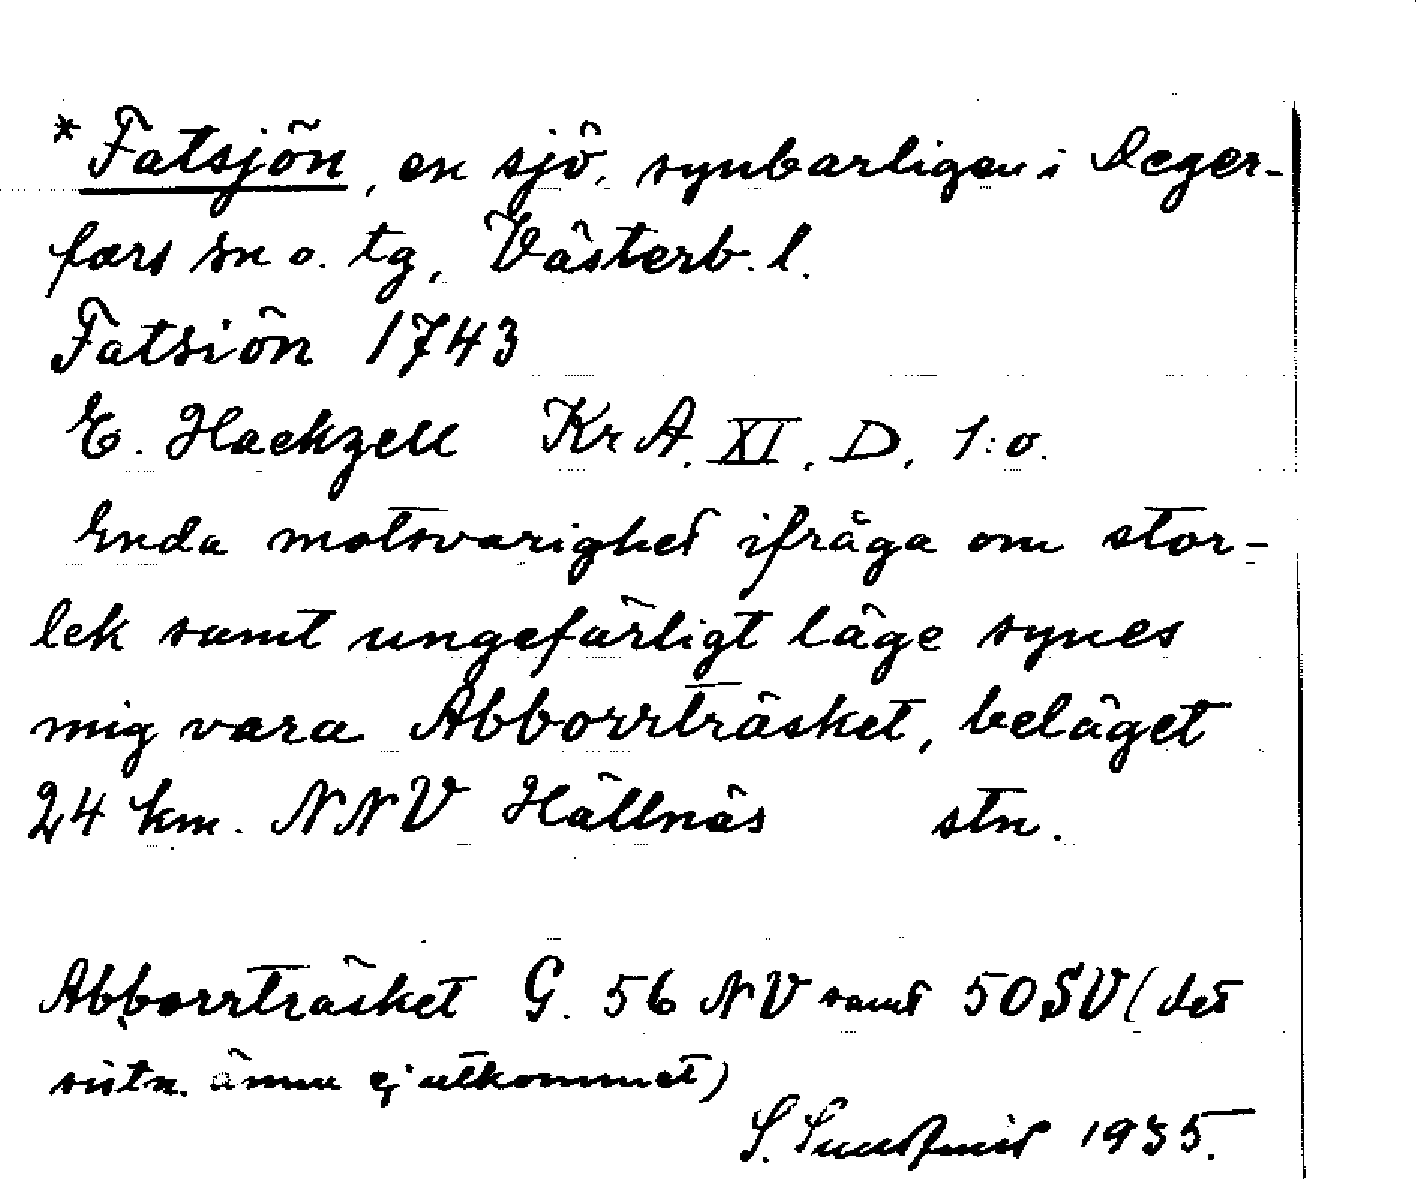 *Fatsjön, en sjö, synbarligen i Deger-
fors sn o. tg, Västerb. l.
Fatsiön 1743
E. Hackzell Kr A. XI. D. 1:o.
Enda motsvarighet ifråga om stor-
lek samt ungefärligt läge synes
mig vara Abborrträsket, beläget
24 km. NNV Hällnäs stn.
Abborrträsket G. 56 NV samt 50 SV (det
sistn. ännu ej utkommet)
S. 1935.